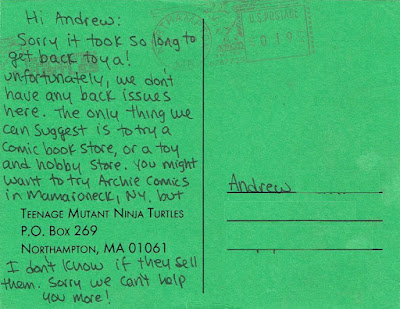 Hi Andrew:
Sorry it took so long to
get back to ya!
Unfortunately, we dont
have any back issues
here. The only thing we
can suggest is to try a
comic book store, or a toy
and hobby store. You might
want to try Archie Comics
in Mamaroneck, NY, but
TEENAGE MUTANT NINJA TURTLES
P.O. BOX 269
NORTHAMPTON, MA 01061
I don't know if they sell
them. Sorry we can't help
you more!
U.S. POSTAGE
Andrew